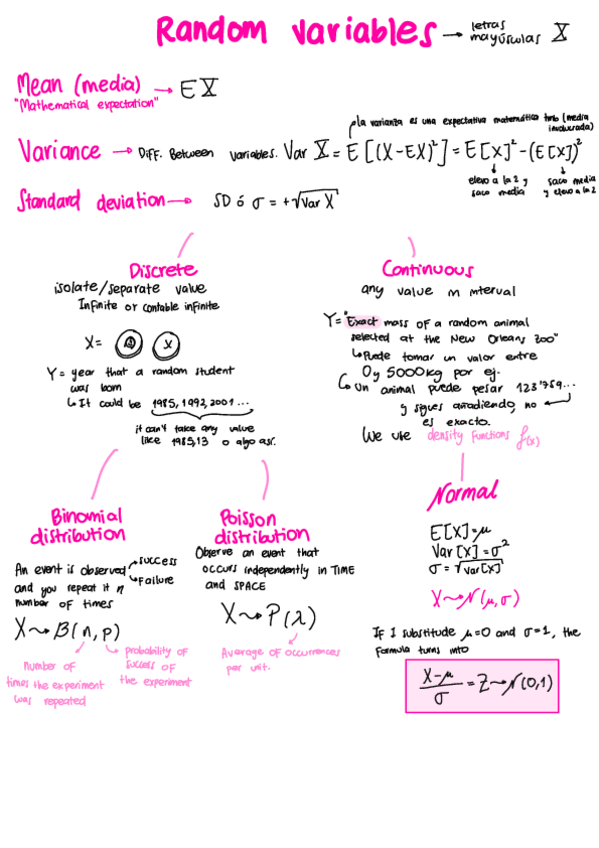 Random variables → letras
mayúsculas X
Mean (media) → E X
"Mathematical expectation"
la varianza es una expectativa matemática tmb (media
involucrada)
Variance → Diff. Between variables. Var X = E [(X-EX)²] = E[X]² - (E[X])²
elevo a la 2 y
saco media
saco media
y elevo a la 2
Standard deviation → SD ó σ = +√Var X
Discrete
isolate/separate value
Infinite or contable infinite
X=
X
Y = year that a random student
was born
↳ It could be 1985, 1992, 2001 ...
it can't take any value
like 1985,13 o algo así.
Continuous
any value in interval
Y= "Exact mass of a random animal
selected at the New Orleans Zoo"
↳ Puede tomar un valor entre
0 y 5000kg por ej.
Un animal puede pesar 123'759...
y sigues añadiendo, no
es exacto.
We use density functions f(x)
Binomial
distribution
An event is observed → success
→ Failure
and you repeat it n
number of times
X⤳B(n,p)
number of
times the experiment
was repeated
probability of
success of
the experiment
Poisson
distribution
Observe an event that
occurs independently in TIME
and SPACE
X⤳P(λ)
Average of occurrences
per unit.
Normal
E[X]=μ
Var[X]=σ²
σ=√Var[X]
X⤳N(μ,σ)
If I substitute μ=0 and σ=1, the
formula turns into
X-μ/σ = Z⤳N(0,1)